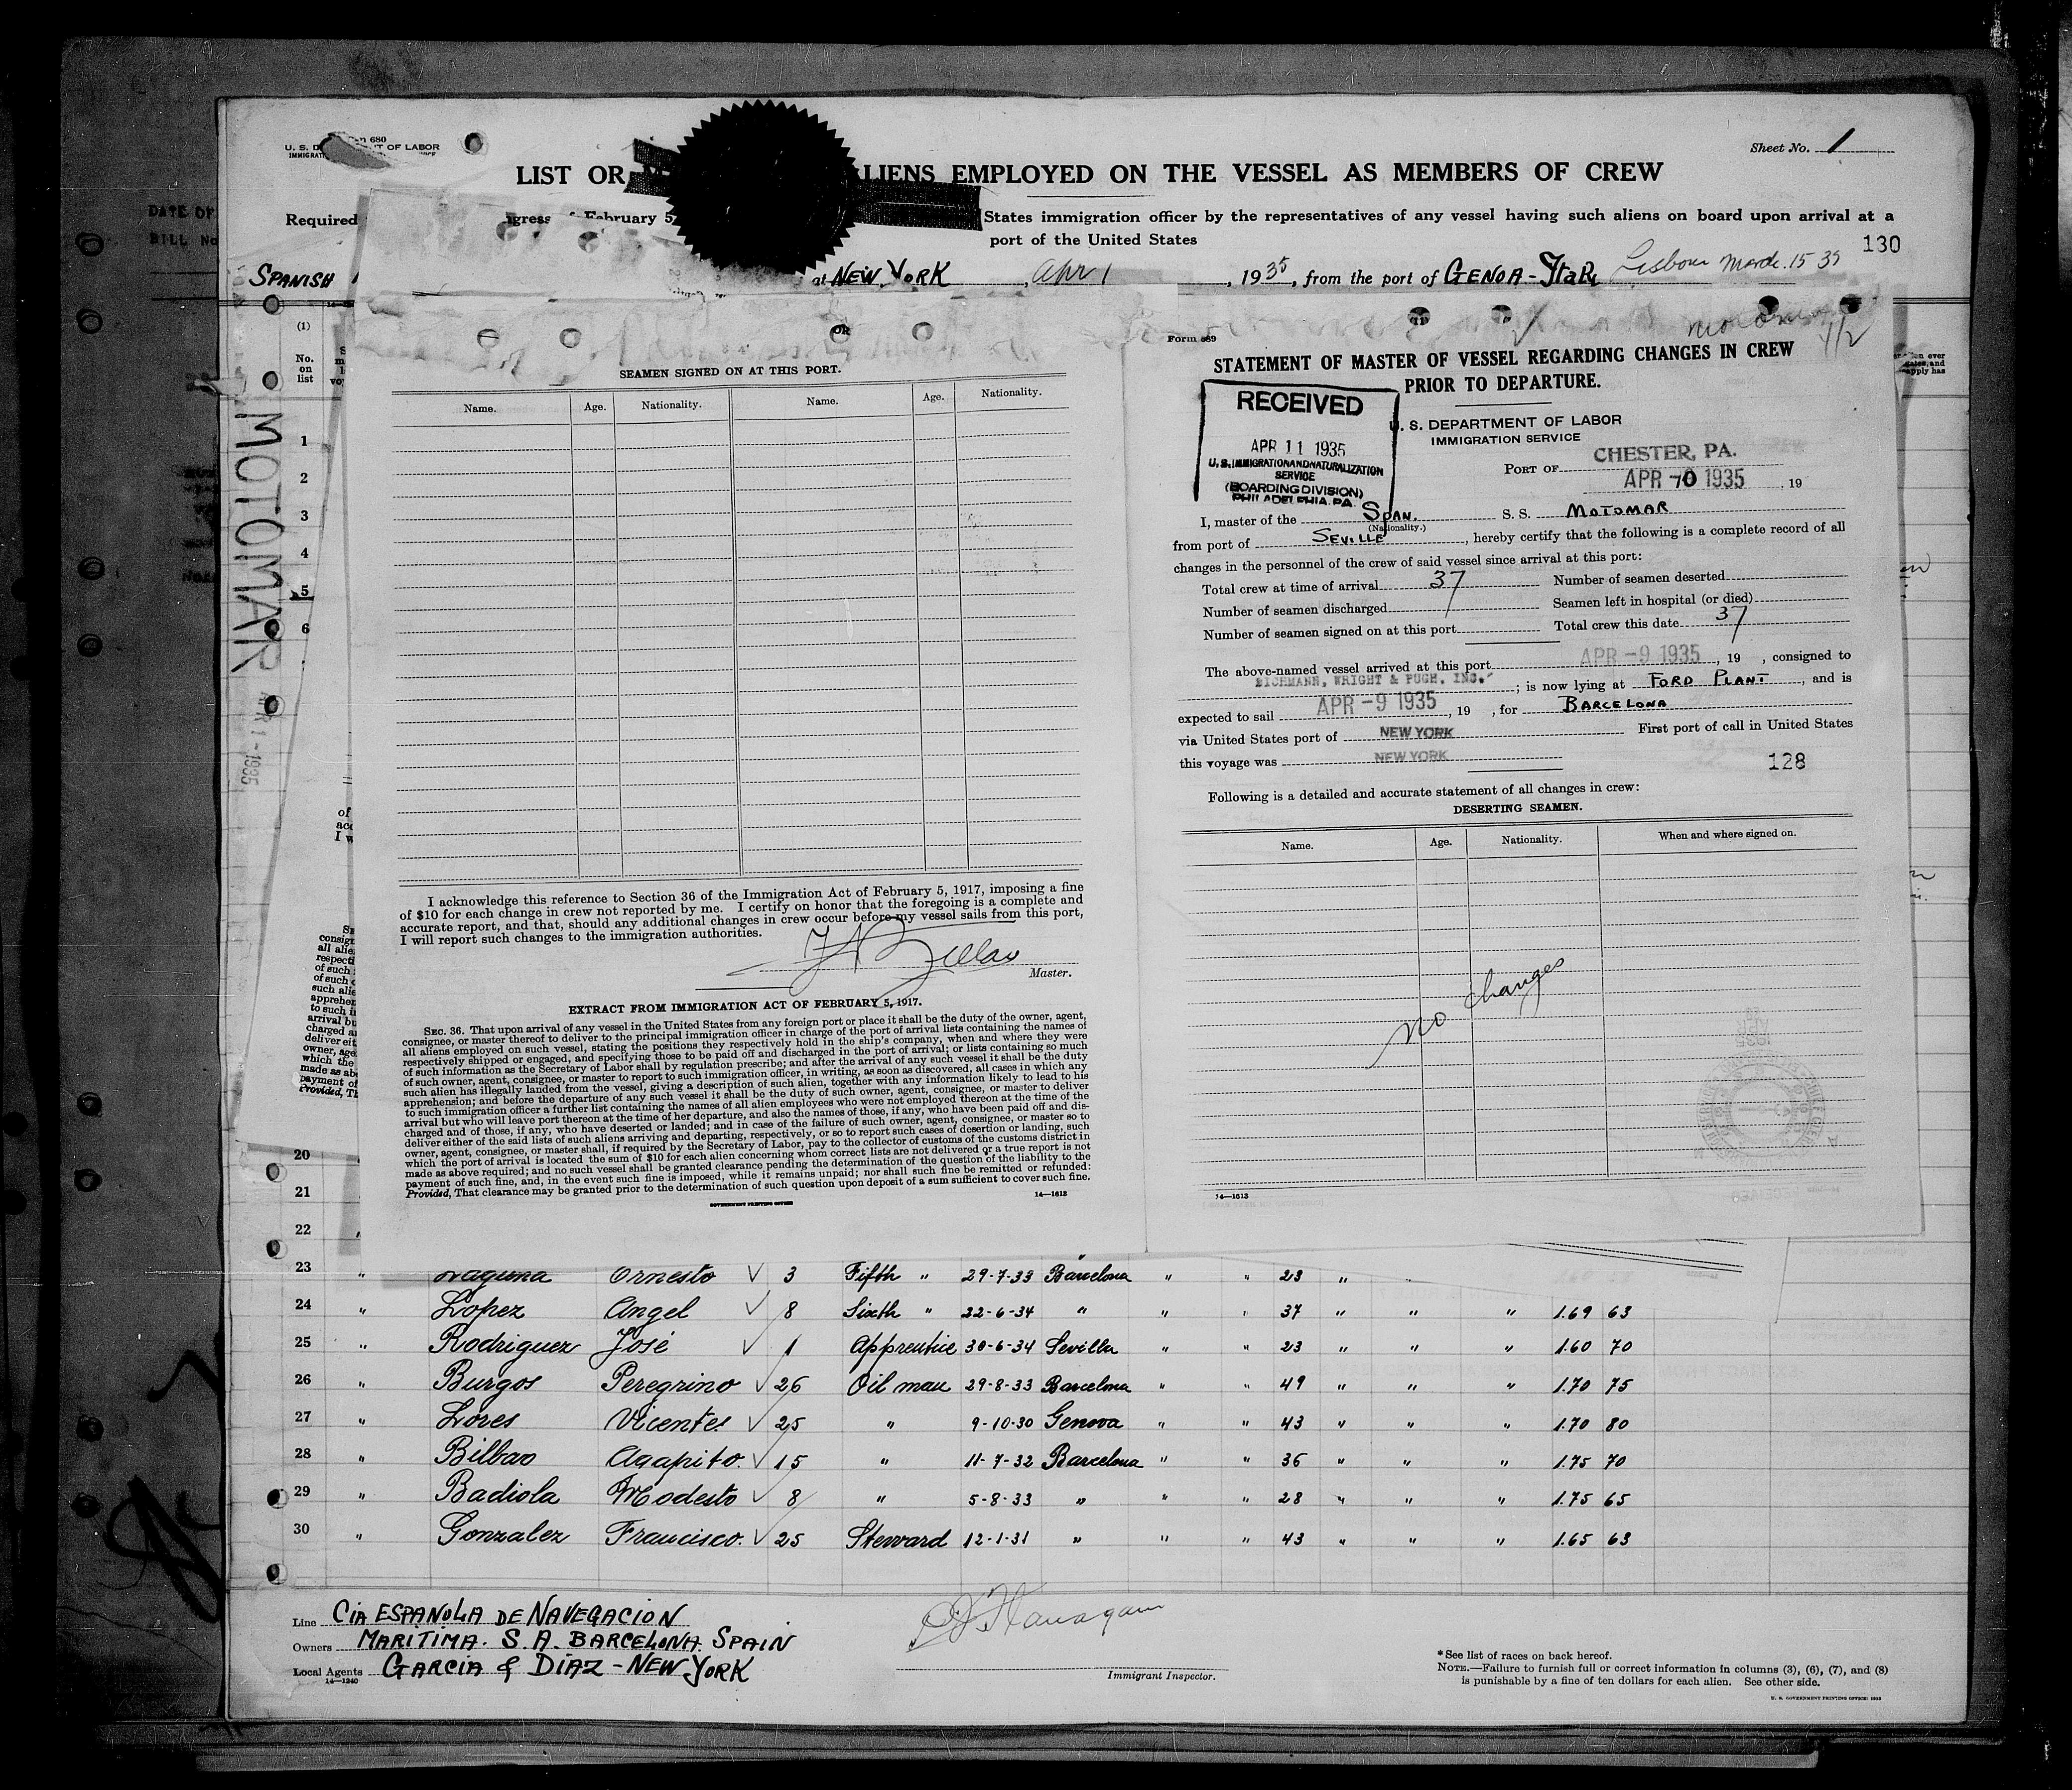 680
U. S. D OF LABOR
Sheet No. 1
LIST OR ALIENS EMPLOYED ON THE VESSEL AS MEMBERS OF CREW
Required February 5, States immigration officer by the representatives of any vessel having such aliens on board upon arrival at a
port of the United States
130
SPANISH at NEW YORK, Apr 1, 1935, from the port of GENOA - Lisbon 15 35
(1)
No.
on
list
MOTOMAR
1
2
3
4
5
6
20
21
22
OR
SEAMEN SIGNED ON AT THIS PORT.
Name. Age. Nationality. Name. Age. Nationality.
I acknowledge this reference to Section 36 of the Immigration Act of February 5, 1917, imposing a fine
of $10 for each change in crew not reported by me. I certify on honor that the foregoing is a complete and
accurate report, and that, should any additional changes in crew occur before my vessel sails from this port,
I will report such changes to the immigration authorities.
Master.
EXTRACT FROM IMMIGRATION ACT OF FEBRUARY 5, 1917.
SEC. 36. That upon arrival of any vessel in the United States from any foreign port or place it shall be the duty of the owner, agent,
consignee, or master thereof to deliver to the principal immigration officer in charge of the port of arrival lists containing the names of
all aliens employed on such vessel, stating the positions they respectively hold in the ship's company, when and where they were
respectively shipped or engaged, and specifying those to be paid off and discharged in the port of arrival; or lists containing so much
of such information as the Secretary of Labor shall by regulation prescribe; and after the arrival of any such vessel it shall be the duty
of such owner, agent, consignee, or master to report to such immigration officer, in writing, as soon as discovered, all cases in which any
such alien has illegally landed from the vessel, giving a description of such alien, together with any information likely to lead to his
apprehension; and before the departure of any such vessel it shall be the duty of such owner, agent, consignee, or master to deliver
to such immigration officer a further list containing the names of all alien employees who were not employed thereon at the time of the
arrival but who will leave port thereon at the time of her departure, and also the names of those, if any, who have been paid off and dis-
charged and of those, if any, who have deserted or landed; and in case of the failure of such owner, agent, consignee, or master so to
deliver either of the said lists of such aliens arriving and departing, respectively, or so to report such cases of desertion or landing, such
owner, agent, consignee, or master shall, if required by the Secretary of Labor, pay to the collector of customs of the customs district in
which the port of arrival is located the sum of $10 for each alien concerning whom correct lists are not delivered or a true report is not
made as above required; and no such vessel shall be granted clearance pending the determination of the question of the liability to the
payment of such fine, and, in the event such fine is imposed, while it remains unpaid; nor shall such fine be remitted or refunded:
Provided, That clearance may be granted prior to the determination of such question upon deposit of a sum sufficient to cover such fine.
GOVERNMENT PRINTING OFFICE 14—1613
Form 689
4/2
STATEMENT OF MASTER OF VESSEL REGARDING CHANGES IN CREW
PRIOR TO DEPARTURE.
RECEIVED
APR 11 1935
U. S. IMMIGRATION AND NATURALIZATION
SERVICE
(BOARDING DIVISION)
PHILADELPHIA, PA.
U. S. DEPARTMENT OF LABOR
IMMIGRATION SERVICE
PORT OF CHESTER, PA.
APR 10 1935, 19
I, master of the SPAN. S. S. MOTOMAR
(Nationality.)
from port of SEVILLE, hereby certify that the following is a complete record of all
changes in the personnel of the crew of said vessel since arrival at this port:
Total crew at time of arrival 37 Number of seamen deserted
Number of seamen discharged Seamen left in hospital (or died)
Number of seamen signed on at this port Total crew this date 37
The above-named vessel arrived at this port APR -9 1935, 19 , consigned to
WRIGHT & PUGH, INC. ; is now lying at FORD PLANT, and is
expected to sail APR -9 1935, 19 , for BARCELONA
via United States port of NEW YORK First port of call in United States
this voyage was NEW YORK
128
Following is a detailed and accurate statement of all changes in crew:
DESERTING SEAMEN.
Name. Age. Nationality. When and where signed on.
No changes
14—1613
23 " Laguna Ornesto √ 3 Fifth " 29-7-33 Barcelona " " 23 "
24 " Lopez Angel √ 8 Sixth " 22-6-34 " " " 37 " " " 1.69 63
25 " Rodriguez José √ 1 Apprentice 30-6-34 Sevilla " " 23 " " " 1.60 70
26 " Burgos Peregrino √ 26 Oil man 29-8-33 Barcelona " " 49 " " " 1.70 75
27 " Lores Vicente √ 25 " 9-10-30 Genova " " 43 " " " 1.70 80
28 " Bilbao Agapito. √ 15 " 11-7-32 Barcelona " " 36 " " " 1.75 70
29 " Badiola Modesto √ 8 " 5-8-33 " " " 28 " " " 1.75 65
30 " Gonzalez Francisco. √ 25 Steward 12-1-31 " " " 43 " " " 1.65 63
Line CIA ESPANOLA DE NAVEGACION
Owners MARITIMA. S. A. BARCELONA. SPAIN
Local Agents GARCIA & DIAZ - NEW YORK
14—1240
Flanagan
Immigrant Inspector.
*See list of races on back hereof.
NOTE.—Failure to furnish full or correct information in columns (3), (6), (7), and (8)
is punishable by a fine of ten dollars for each alien. See other side.